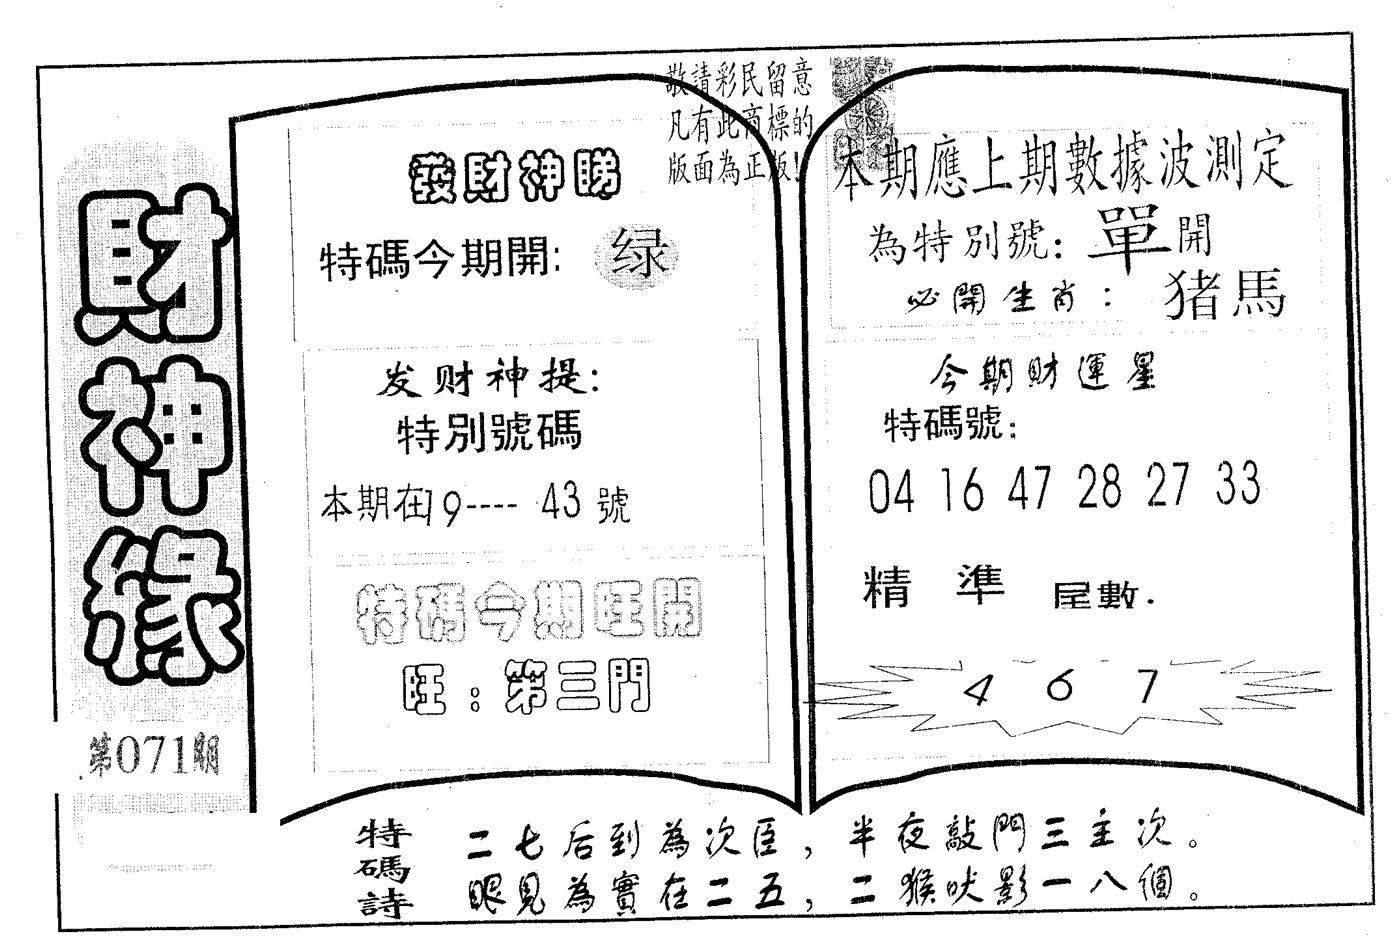 財神緣
第071期
敬請彩民留意
凡有此商標的
版面為正版!
發財神睇
特碼今期開: 绿
发财神提:
特別號碼
本期在19---- 43 號
特碼今期旺開
旺:第三門
本期應上期數據波測定
為特別號: 單開
必開生肖: 猪馬
今期財運星
特碼號:
04 16 47 28 27 33
精 準 尾數.
4 6 7
特碼詩
二七后到為次臣,半夜敲門三主次。
眼見為實在二五,二猴吠影一八個。